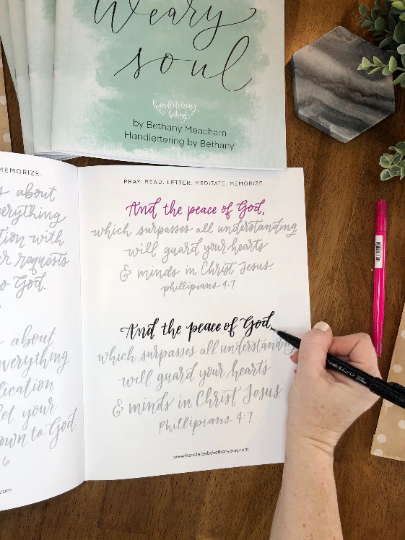 Weary
soul
handlettering
by Bethany Meacham
Handlettering by Bethany
MEMORIZE.
s about
everything
tion with
er requests
to God.
about
everything
lication
let your
own to God.
6
PRAY. READ. LETTER. MEDITATE. MEMORIZE.
And the peace of God,
which surpasses all understanding
will guard your hearts
& minds in Christ Jesus.
phillipians 4:7
And the peace of God,
which surpasses all understanding
will guard your hearts
& minds in Christ Jesus
Phillipians 4:7